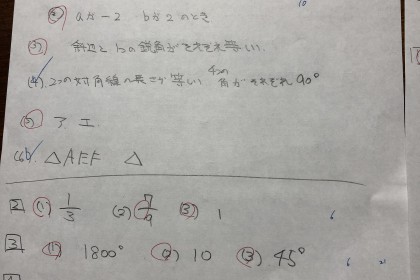 10
(2) aが-2 bが2のとき
(3) 斜辺と1つの鋭角がそれぞれ等しい
(4) 2つの対角線の長さが等しい 4つの角がそれぞれ90°
(5) ア エ
(6) △AEF △
2 (1) 1/3 (2) 7/9 (3) 1 6
3 (1) 1800° (2) 10 (3) 45° 6 21